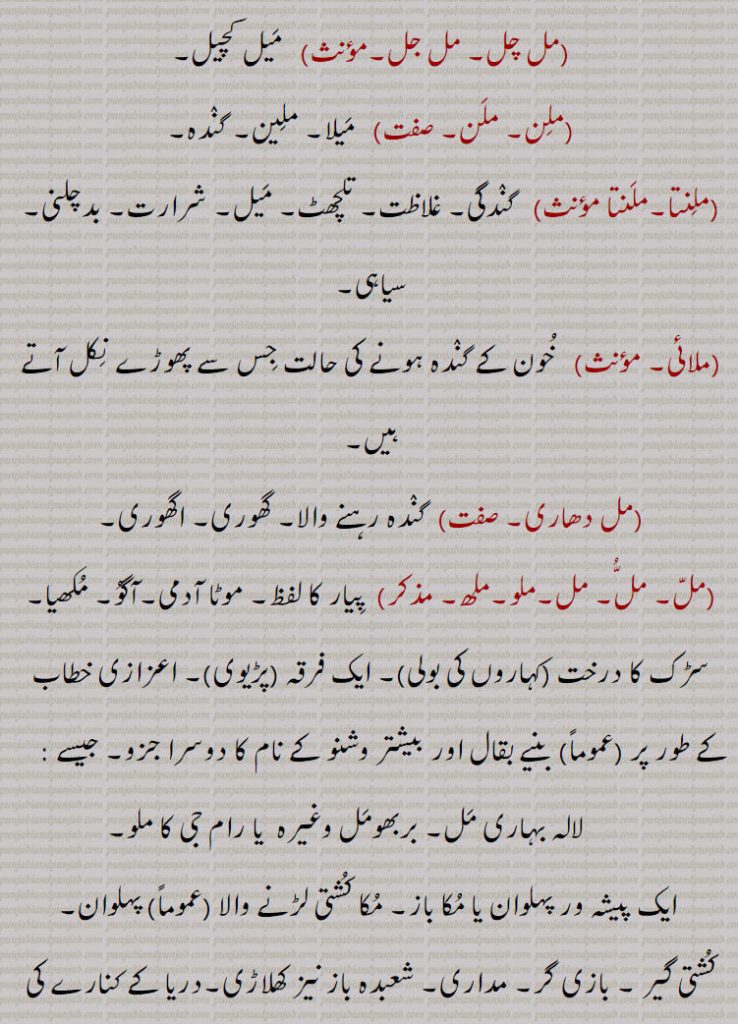 (مل چل۔ مل جل۔مؤنث) مَیل کچیل۔
(ملِن۔ ملَن۔ صفت) مَیلا۔ ملِین۔ گنْدہ۔
(ملِنتا۔ملَنتا مؤنث) گنْدگی۔ غلاظت۔ تلچھٹ۔ مَیل۔ شرارت۔ بدچلنی۔
سیاہی۔
(ملائی۔ مؤنث) خُون کے گنْدہ ہونے کی حالت جِس سے پھوڑے نِکل آتے
ہیں۔
(مل دھاری۔ صفت) گنْدہ رہنے والا۔ گھوری۔ اگھوری۔
(ملّ۔ ملُّ۔ مل۔ملو۔ملھ۔ مذکر) پِیار کا لفظ۔ موٹا آدمی۔آگوُ۔ مُکھیا۔
سڑک کا درخت (کہاروں کی بولی)۔ ایک فرقہ (پڑیوی)۔ اعزازی خطاب
کے طور پر (عموماً) بنیے بقال اور بیشتر وشنو کے نام کا دوسرا جزو۔ جیسے :
لالہ بہاری مَل۔ بربھومَل وغیرہ یا رام جی کا ملو۔
ایک پیشہ ور پہلوان یا مُکا باز۔ مُکا کُشتی لڑنے والا (عموماً) پہلوان۔
کُشتی گیر ۔ بازی گر۔ مداری۔ شعبدہ باز نیز کھلاڑی۔دریا کے کنارے کی